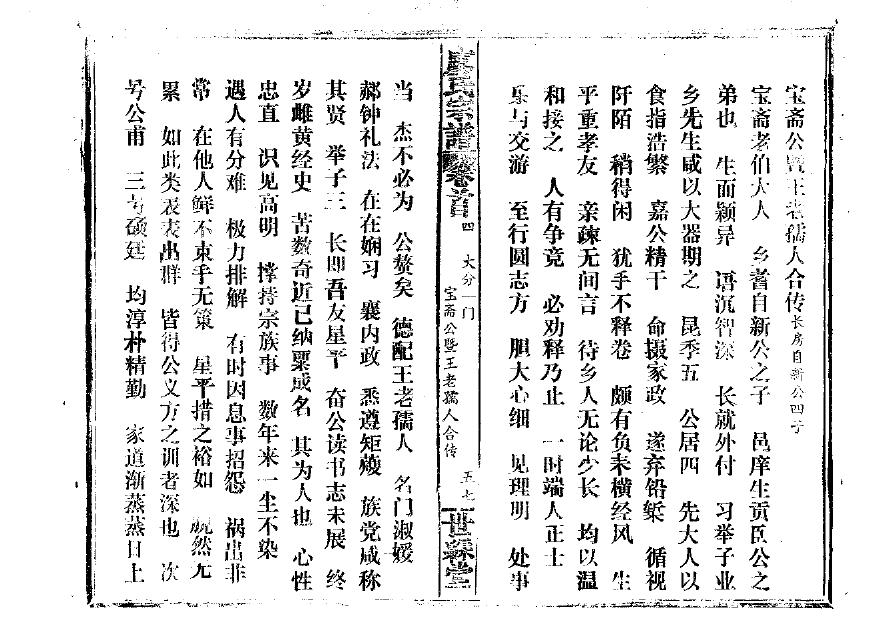 宝斋公暨王老孺人合传 长房自新公四子
宝斋老伯大人 乡耆自新公之子 邑庠生贡臣公之
弟也 生而颖异 语沉智深 长就外付 习举子业
乡先生咸以大器期之 昆季五 公居四 先大人以
食指浩繁 嘉公精干 命摄家政 遂弃铅椠 循视
阡陌 稍得闲 犹手不释卷 颇有负耒横经风 生
平重孝友 亲疎无间言 待乡人无论少长 均以温
和接之 人有争竞 必劝释乃止 一时端人正士
乐与交游 至行圆志方 胆大心细 见理明 处事
氏宗谱 卷首 四 大分一门
宝斋公暨王老孺人合传
五七 世 堂
当 杰不必为 公赘矣 德配王老孺人 名门淑媛
郝钟礼法 在在娴习 襄内政 悉遵矩矱 族党咸称
其贤 举子三 长即吾友星平 奋公读书志未展 终
岁雌黄经史 苦数奇近已纳粟成名 其为人也 心性
忠直 识见高明 撑持宗族事 数年来一尘不染
遇人有分难 极力排解 有时因息事招怨 祸出非
常 在他人鲜不束手无策 星平措之裕如 貌然无
累 如此类表表出群 皆得公义方之训者深也 次
号公甫 三号硕廷 均淳朴精勤 家道渐蒸蒸日上